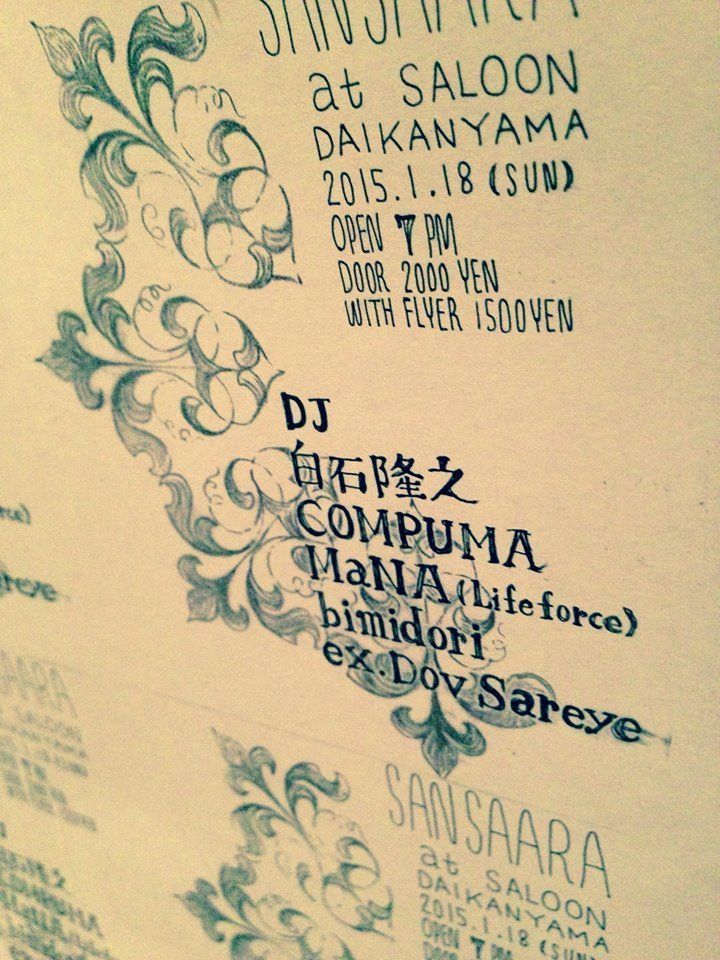 SANSAARA
at SALOON
DAIKANYAMA
2015.1.18 (SUN)
OPEN 7 PM
DOOR 2000 YEN
WITH FLYER 1500YEN
DJ
白石隆之
COMPUMA
MaNA (Lifeforce)
bimidori
ex. Dov Sareye
SANSAARA
at SALOON
DAIKANYAMA
2015.1.18 (SUN)
OPEN 7 PM
DOOR